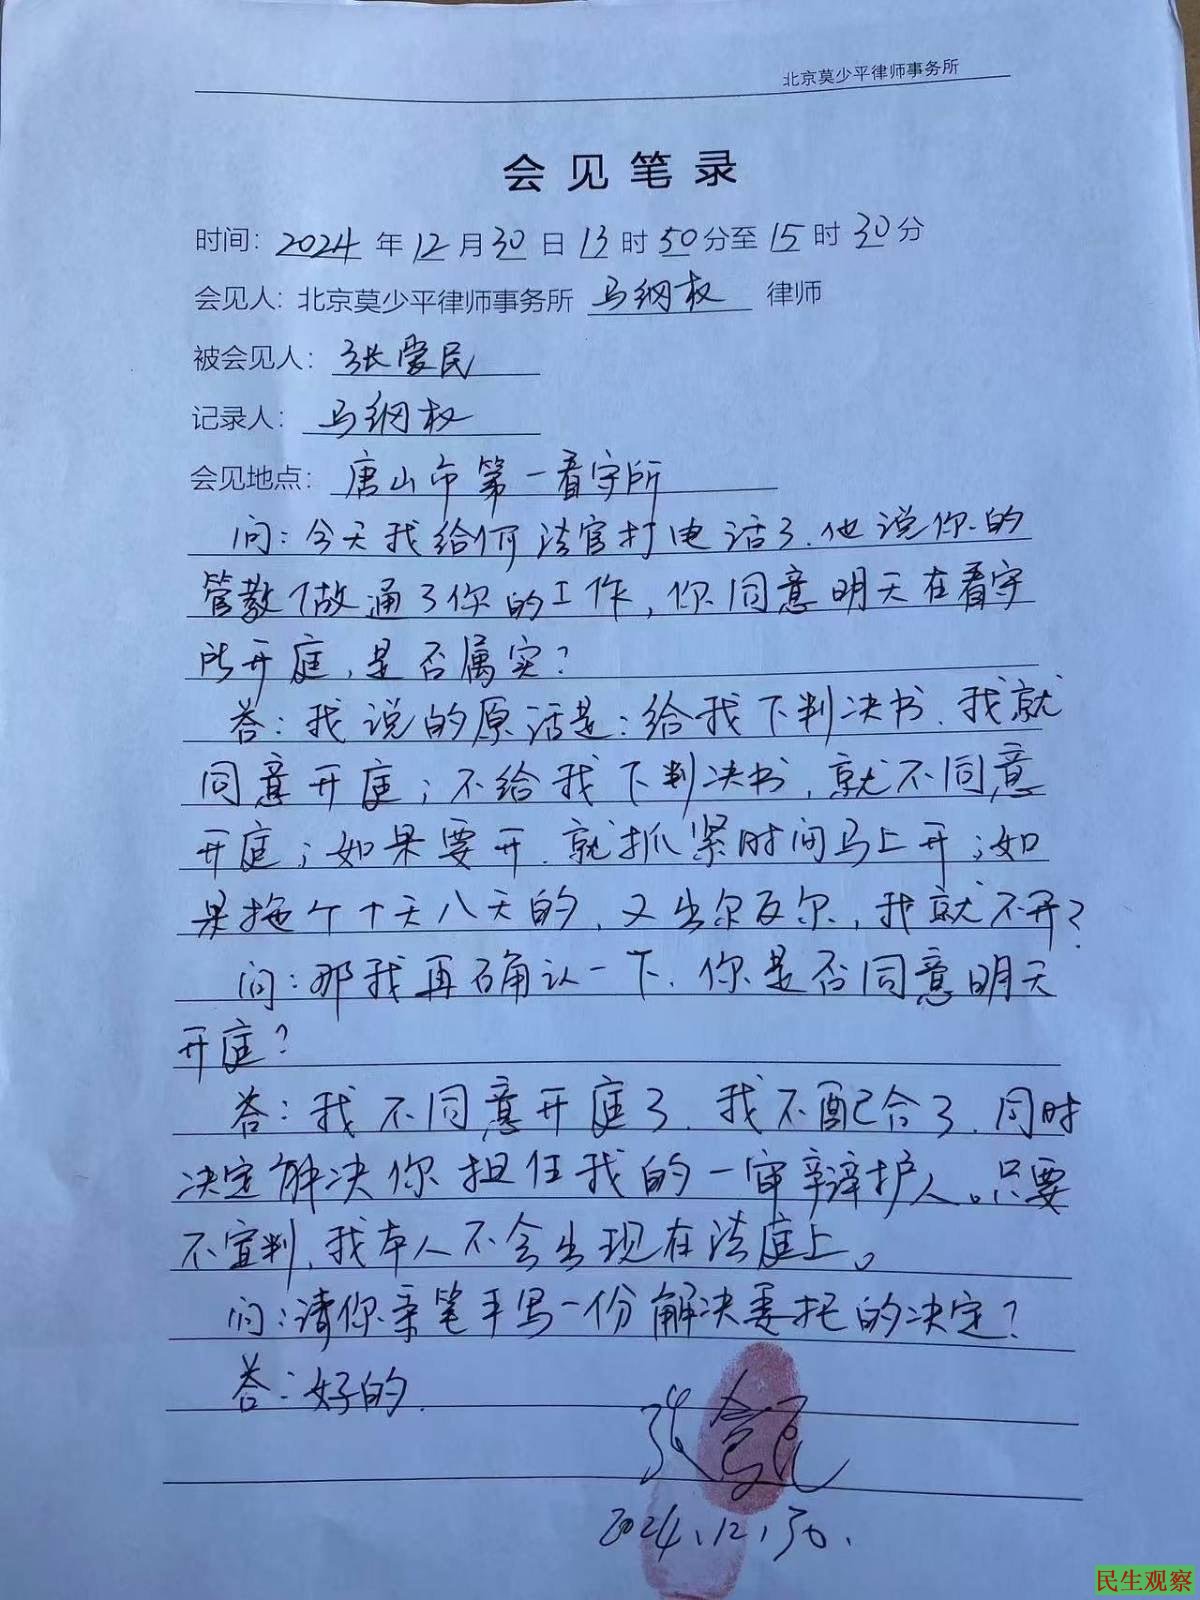 北京莫少平律师事务所
会见笔录
时间：2024年12月30日13时50分至15时30分
会见人：北京莫少平律师事务所 马纲权 律师
被会见人：张爱民
记录人：马纲权
会见地点：唐山市第一看守所
问：今天我给何法官打电话了，他说你的
管教做通了你的工作，你同意明天在看守
所开庭，是否属实？
答：我说的原话是：给我下判决书，我就
同意开庭；不给我下判决书，就不同意
开庭；如果要开，就抓紧时间马上开；如
果拖个十天八天的，又出尔反尔，我就不开？
问：那我再确认一下，你是否同意明天
开庭？
答：我不同意开庭了，我不配合了，同时
决定解决你担任我的一审辩护人。只要
不宣判，我本人不会出现在法庭上。
问：请你亲笔手写一份解决委托的决定？
答：好的.
张爱民
2024.12.30.
民生观察